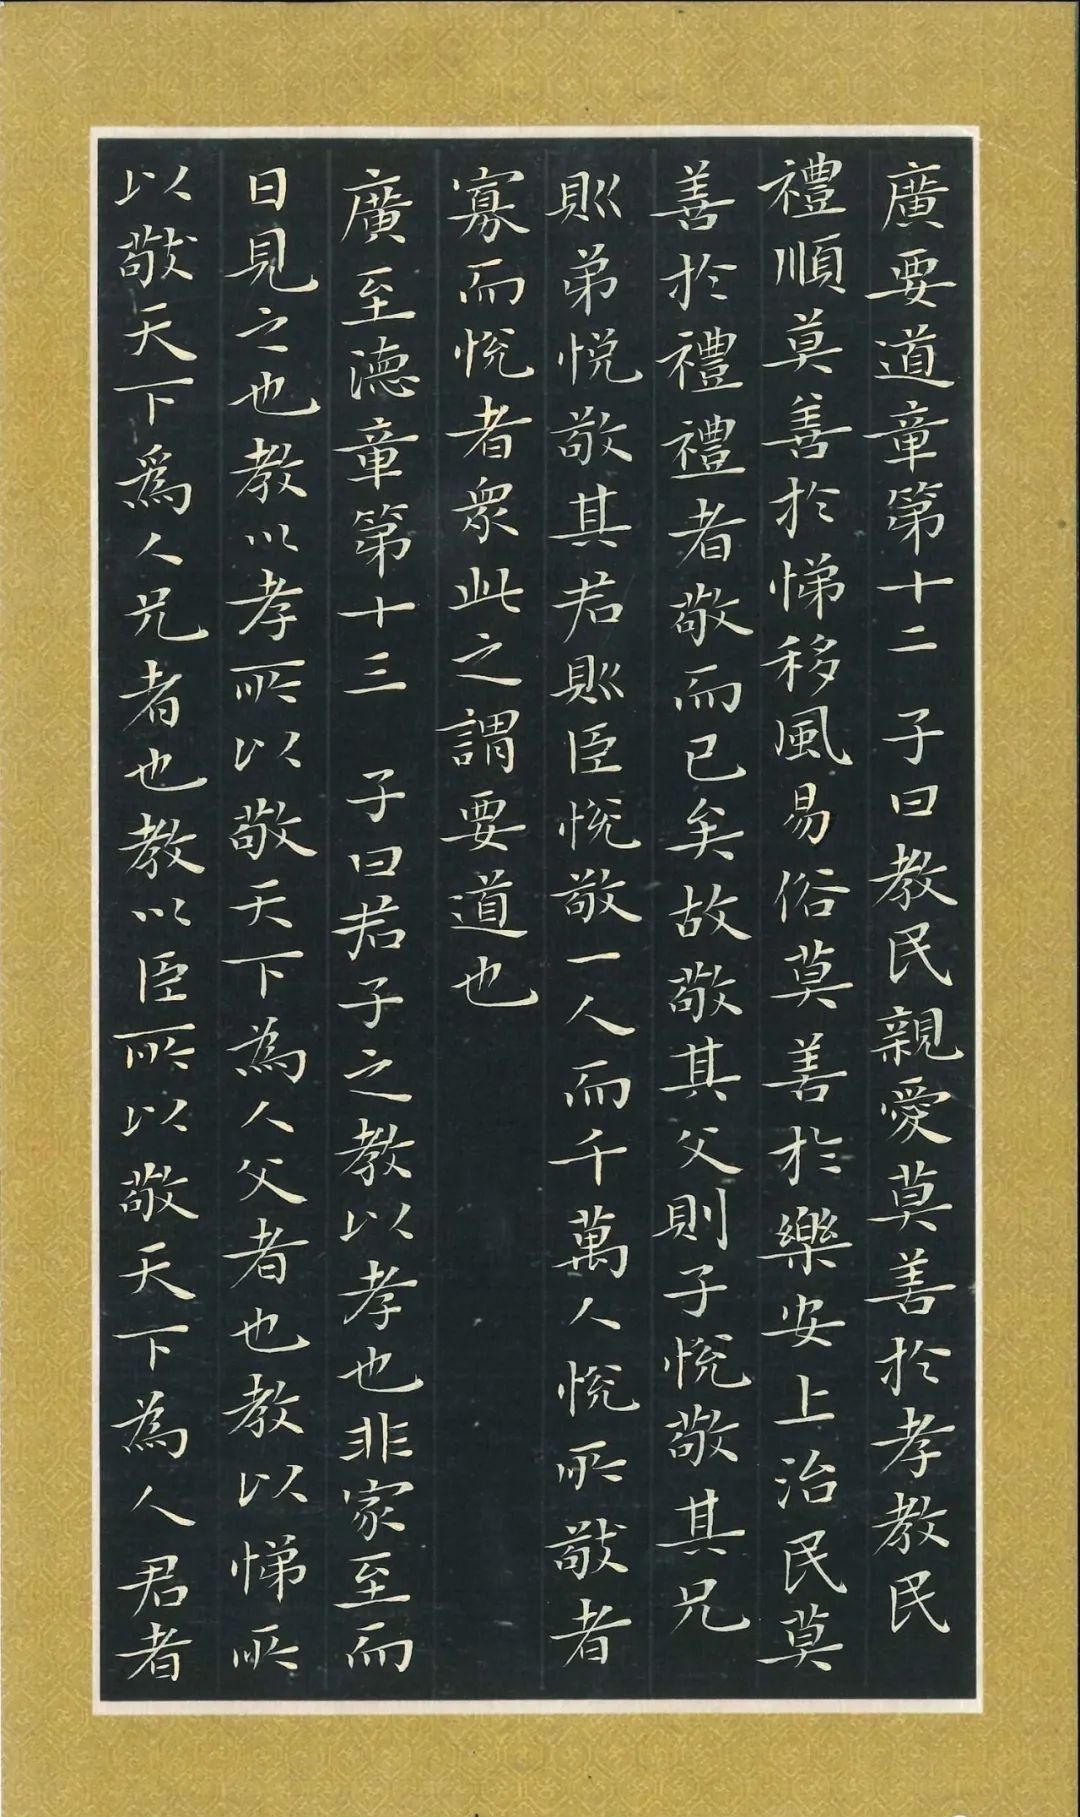 廣要道章第十二 子曰教民親愛莫善於孝教民
禮順莫善於悌移風易俗莫善於樂安上治民莫
善於禮禮者敬而已矣故敬其父則子悅敬其兄
則弟悅敬其君則臣悅敬一人而千萬人悅所敬者
寡而悅者眾此之謂要道也
廣至德章第十三 子曰君子之教以孝也非家至而
日見之也教以孝所以敬天下為人父者也教以悌所
以敬天下爲人兄者也教以臣所以敬天下為人君者